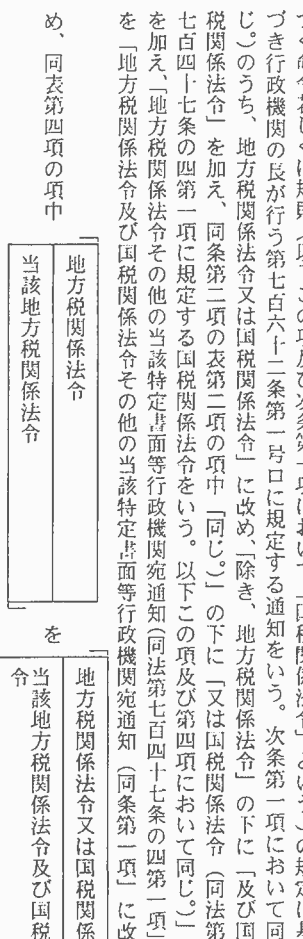 づき行政機関の長が行う第七百六十二条第一号ロに規定する通知をいう。次条第一項において同
じ。）のうち、地方税関係法令又は国税関係法令」に改め、「除き、地方税関係法令」の下に「及び国
税関係法令」を加え、同条第二項の表第二項の項中「同じ。）」の下に「又は国税関係法令（同法第
七百四十七条の四第一項に規定する国税関係法令をいう。以下この項及び第四項において同じ。）」
を加え、「地方税関係法令その他の当該特定書面等行政機関宛通知（同法第七百四十七条の四第一項」
を「地方税関係法令及び国税関係法令その他の当該特定書面等行政機関宛通知（同条第一項」に改
め、同表第四項の項中
「地方税関係法令
当該地方税関係法令」
を
「地方税関係法令又は国税関係
当該地方税関係法令及び国税
令